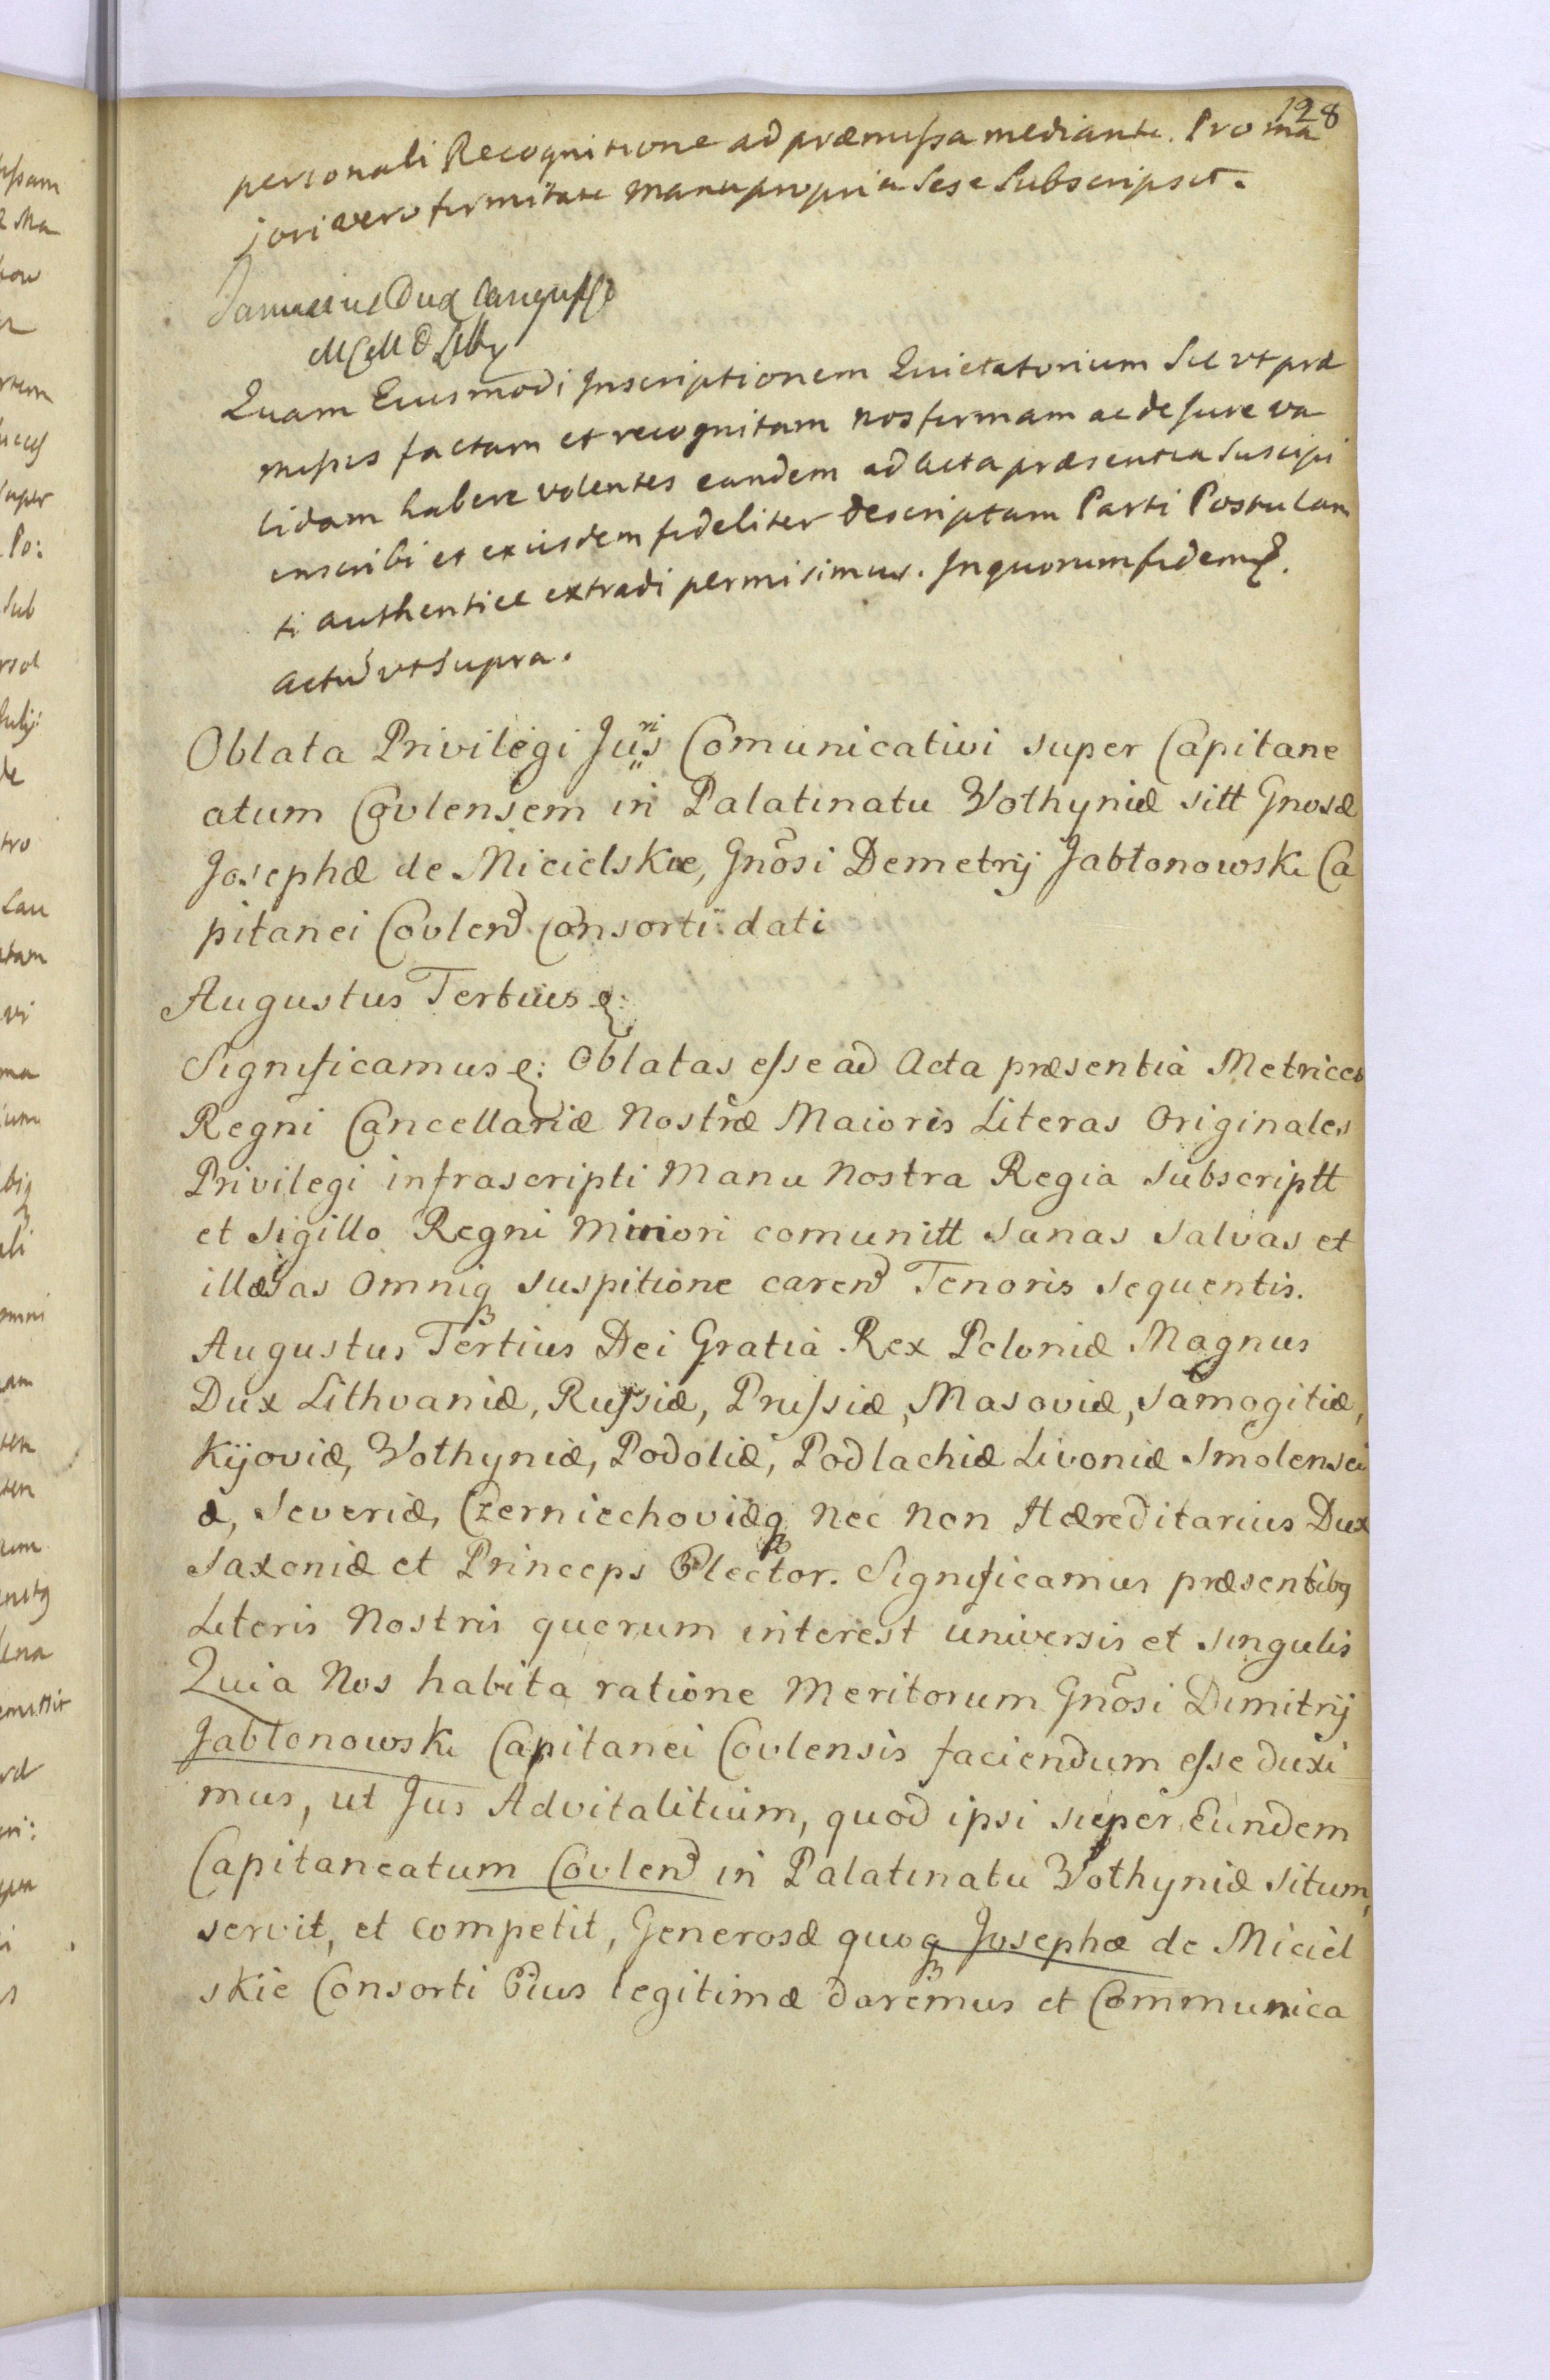 128
personali Recognitione ad præmissa mediante. Pro ma
iori vero firmitate manu propria sese subscripsit.
Janussius Dux Sangussko
Quam Eiusmodi Inscriptionem Quietatorium Sic vt præ
missis factam et recognitam nos firmam ac de Jure va
lidam habere volentes eandem ad acta præsentia suscipi
inscribi et exiisdem fideliter descriptam Parti Postulan
ti authentice extradi permisimus. In quorum fidem &.
actũ vt supra.
Oblata Privilegi Juris Comunicativi super Capitane
atum Covlensem in Palatinatu Wolhyniæ sitt Gnosæ
Josephæ de Micielskie, Gnõsi Demetrij Jabłonowski Ca
pitanei Covlen Consorti dati
Augustus Tertius &:
Significamus &: Oblatas esse ad Acta præsentia Metrices
Regni Cancellariæ Nostræ Maioris Literas Originales
Privilegi infrascripti Manu Nostra Regia subscriptt
et sigillo Regni Minori comunitt sanas salvas et
illæsas omniq suspitione caren Tenoris sequentis.
Augustus Tertius Dei Gratia Rex Poloniæ Magnus
Dux Lithvaniæ, Russiæ, Prussiæ, Masoviæ, Samogitiæ,
Kijoviæ, Wolhyniæ, Podoliæ, Podlachiæ Livoniæ Smolensci
æ, Severiæ, Czerniechoviæq nec non Hæreditarius Dux
Saxoniæ et Princeps Elector. Significamus præsentibq
Literis Nostris quorum interest universis et singulis
Quia Nos habita ratione Meritorum Gnõsi Dimitrij
Jabłonowski Capitanei Covlensis faciendum esse duxi
mus, ut Jus Advitalitium, quod ipsi super Eundem
Capitaneatum Covlen in Palatinatu Wolhyniæ situm,
servit, et competit, Generosæ quoq Josephæ de Miciel
skie Consorti Eius legitimæ daremus et Communica